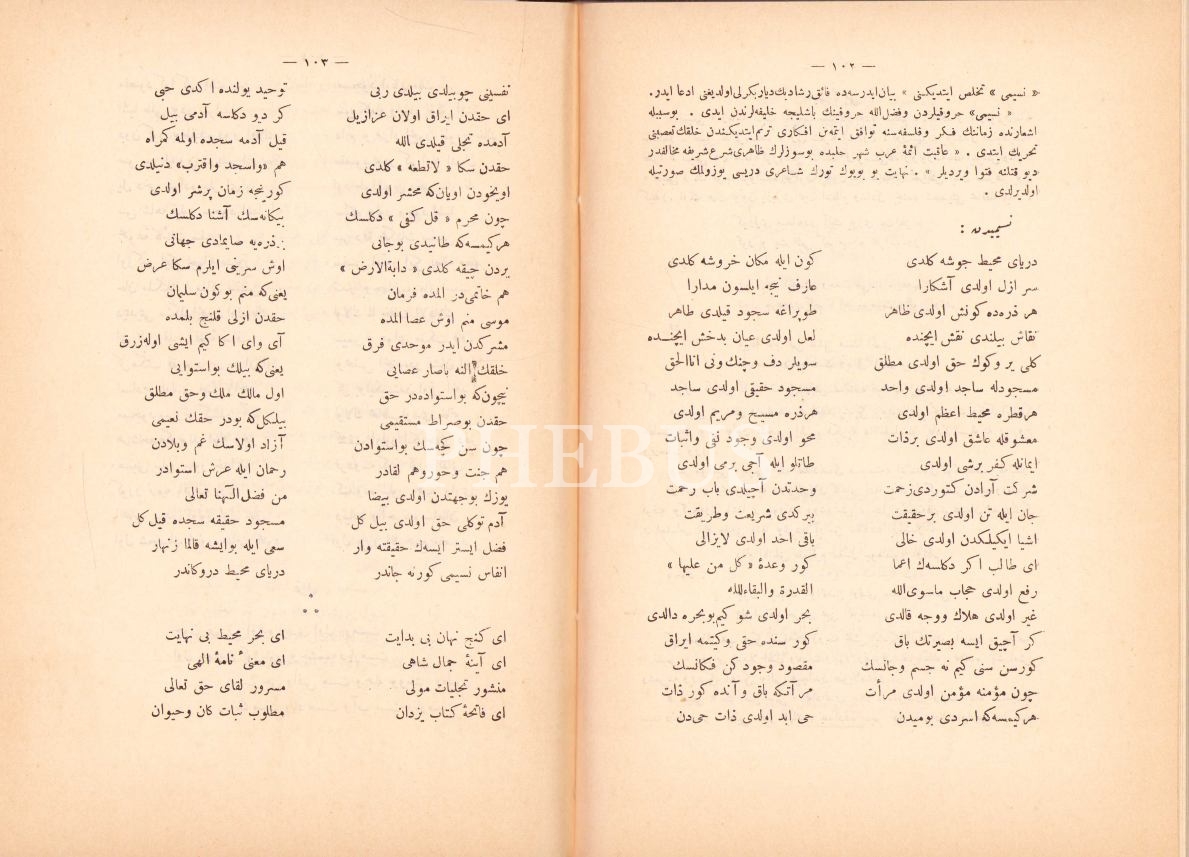 — ١٠٢ —
« نسیمی » تخلص ایتدیکنی » بیان ایدرسه‌ده فائق رشاد بك دیار بکرلی اولدیغنی ادعا ایدر.
« نسیمی» حروفیلردن وفضل‌الله حروفینك باشلیجه خلیفه‌لرندن ایدی . بوسببله
اشعارنده زماننك فكر وفلسفه‌سنه توافق ایتمه‌ین افكاری ترنم ایتدیكندن خلقك تعصبنی
تحریك ایتدی . « عاقبت ائمهٔ عرب شهر حلبده بوسوزلرك ظاهری شرع شریفه مخالفدر
دیو قتلنه فتوا ویردیلر » . نهایت بو بویوك تورك شاعری دریسی یوزولمك صورتیله
اولدیرلدی .
نسیمیدن :
دریای محیط جوشه كلدی كون ایله مكان خروشه كلدی
سر ازل اولدی آشكارا عارف نیجه ایلسون مدارا
هر ذره‌ده كونش اولدی ظاهر طوپراغه سجود قیلدی طاهر
نقاش بیلندی نقش ایچنده لعل اولدی عیان بدخش ایچنــده
كلی یر وكوك حق اولدی مطلق سویلر دف وچنك ونی اناالحق
مسجودله ساجد اولدی واحد مسجود حقیقی اولدی ساجد
هرقطره محیط اعظم اولدی هرذره مسیح ومریم اولدی
معشوقله عاشق اولدی برذات محو اولدی وجود نفی واثبات
ایمانله كفر برشی اولدی طاتلو ایله آجی برمی اولدی
شركت آرادن كتوردی زحمت وحدتدن آچیلدی باب رحمت
جان ایله تن اولدی برحقیقت بیركدی شریعت وطریقت
اشیا ایكیلكدن اولدی خالی باقی احد اولدی لایزالی
ای طالب اكر دكلسه‌ك اعما كور وعدهٔ « كل من علیها »
رفع اولدی حجاب ماسوی‌الله القدرة والبقاءلله
غیر اولدی هلاك ووجه قالدی بحر اولدی شو كیم بوبحره دالدی
كر آچیق ایسه بصیرتك باق كور سنده حقی وكیتمه ایراق
كورسن سنی كیم نه جسم وجانسك مقصود وجود كن فكانسك
چون مؤمنه مؤمن اولدی مرأت مرآتكه باق وآنده كور ذات
هركیمسه‌كه اسردی بومیدن حی ابد اولدی ذات حی‌دن
— ١٠٣ —
نفسینی چوبیلدی بیلدی ربی توحید یولنده اكدی حبی
ای حقدن ایراق اولان عزازیل كر دیو دكلسه آدمی بیل
آدمده تجلی قیلدی الله قیل آدمه سجده اولمه كمراه
حقدن سكا « لاتطعه » كلدی هم «واسجد واقترب» دنیلدی
اویخودن اویان‌كه محشر اولدی كورنیجه زمان پرشر اولدی
چون محرم « قل كفی » دكلسك بیكانه‌سك آشنا دكلسك
هركیمسه‌كه طانیدی بوجانی بر ذره‌یه صایمادی جهانی
یردن چیقه كلدی « دابةالارض » اوش سرینی ایلرم سكا عرض
هم خاتمی‌در المده فرمان یعنی‌كه منم بوكون سلیمان
موسی منم اوش عصا المده حقدن ازلی قلنج بلمده
مشركدن ایدر موحدی فرق آی وای اكا كیم ایشی اوله‌زرق
خلقك النه باصار عصایی یعنی‌كه بیلك بواستوایی
نیچون‌كه بواستواده‌در حق اول مالك ملك وحق مطلق
حقدن بوصراط مستقیمی بیلكل‌كه بودر حقك نعیمی
چون سن كچه‌سك بواستوادن آزاد اولاسك غم وبلادن
هم جنت وحوروهم لقادر رحمان ایله عرش استوادر
یوزك بوجهتدن اولدی بیضا من فضل الٓهنا تعالی
آدم توكلی حق اولدی بیل كل مسجود حقیقه سجده قیل كل
فضل ایستر ایسه‌ك حقیقته وار سعی ایله بوایشه قالما زنهار
انفاس نسیمی كورنه جاندر دریای محیط دروكاندر
ای كنج نهان بی بدایت ای بحر محیط بی نهایت
ای آینهٔ جمال شاهی ای معنیٔ نامهٔ الهی
منشور تجلیات مولی مسرور لقای حق تعالی
ای فاتحهٔ كتاب یزدان مطلوب ثبات كان وحیوان
PHEBUS